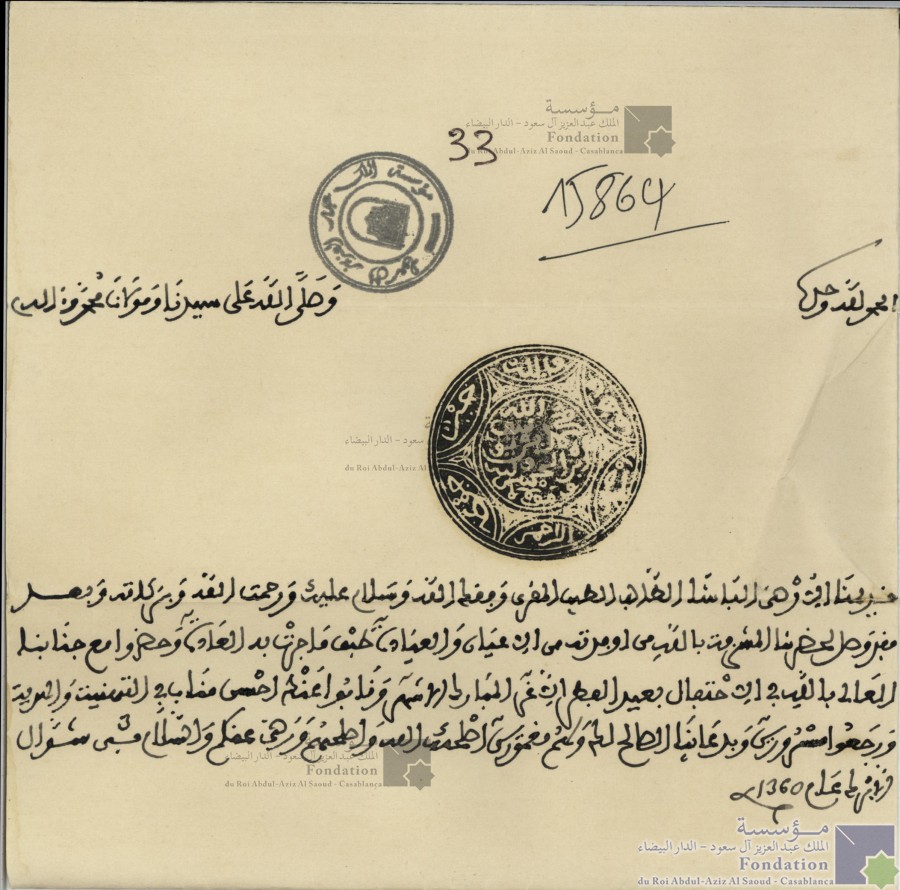 مؤسسة
الملك عبد العزيز آل سعود - الدار البيضاء
Fondation
du Roi Abdul-Aziz Al Saoud - Casablanca
33
15864
الحمد لله وحده
وصلى الله على سيدنا ومولانا محمد وءاله
سعود - الدار البيضاء
du Roi Abdul-Aziz Al
خديمنا الباشا الطالب الطيب المقري وفقك الله وسلام عليك ورحمت الله وبركاته وبعد
فقد وصل لحضرتنا المشرفة بالله من اوفدته من الاعيان والعيادي طبق ما جرت به العادة وحضروا مع جنابنا
العالي بالله في الاحتفال بعيد الفطر الاغر المبارك الاسم ونابوا عنكم احسن مناب في التهنئت والهدية
ورجعوا مسرورين وبدعائنا الصالح لهم ولكم مغمورين اصلحك الله واصلحهم ورضي عنكم والسلام في شوال
الابرك عام 1360
الملك عبد العزيز آل سعود - الدار البيضاء
Fondation
du Roi Abdul-Aziz Al Saoud - Casablanca
مؤسسة
الملك عبد العزيز آل سعود - الدار البيضاء
Fondation
du Roi Abdul-Aziz Al Saoud - Casablanca